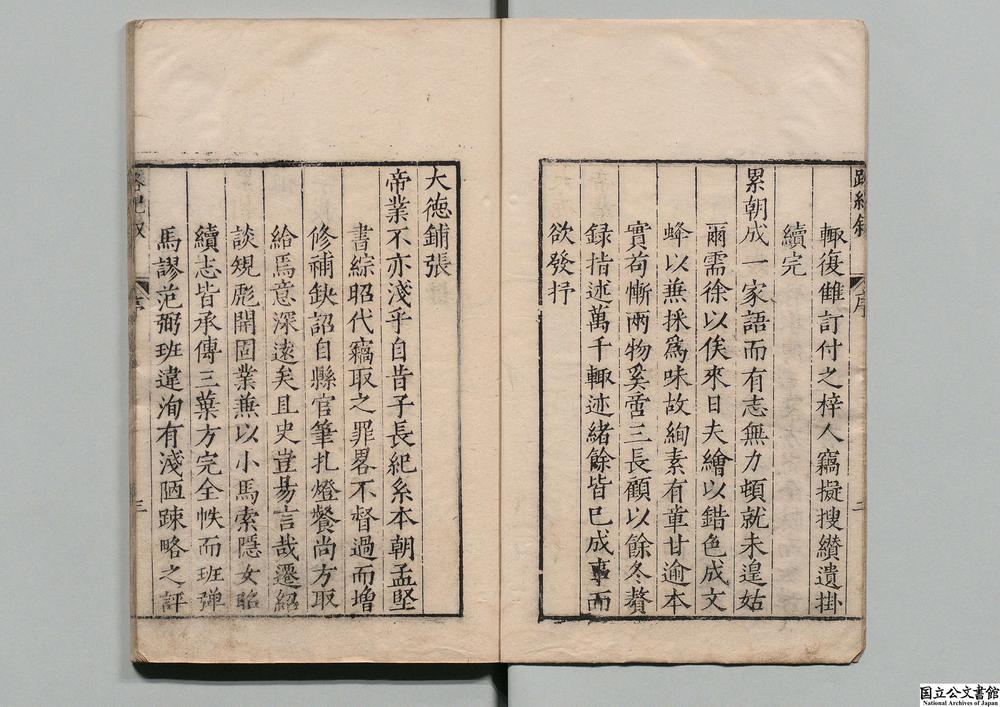 輙復雠訂付之梓人竊擬搜纉遺掛
續完
累朝成一家語而有志無力頓就未遑姑
爾需徐以俟來日夫繪以錯色成文
蜂以兼採爲味故絢素有章甘逾本
實苟慚兩物奚啻三長顧以餘冬贅
録指述萬千輙述緒餘皆已成事而
欲發抒
大德鋪張
帝業不亦淺乎自昔子長紀系本朝孟堅
書綜昭代竊取之罪畧不督過而增
修補缺詔自縣官筆札燈餐尚方取
給爲意深遠矣且史豈易言哉遷紹
談規彪開固業兼以小馬索隱女昭
續志皆承傳三葉方完全帙而班殫
馬謬范弼班違洵有淺陋踈略之評
序
二
三
国立公文書館
National Archives of Japan